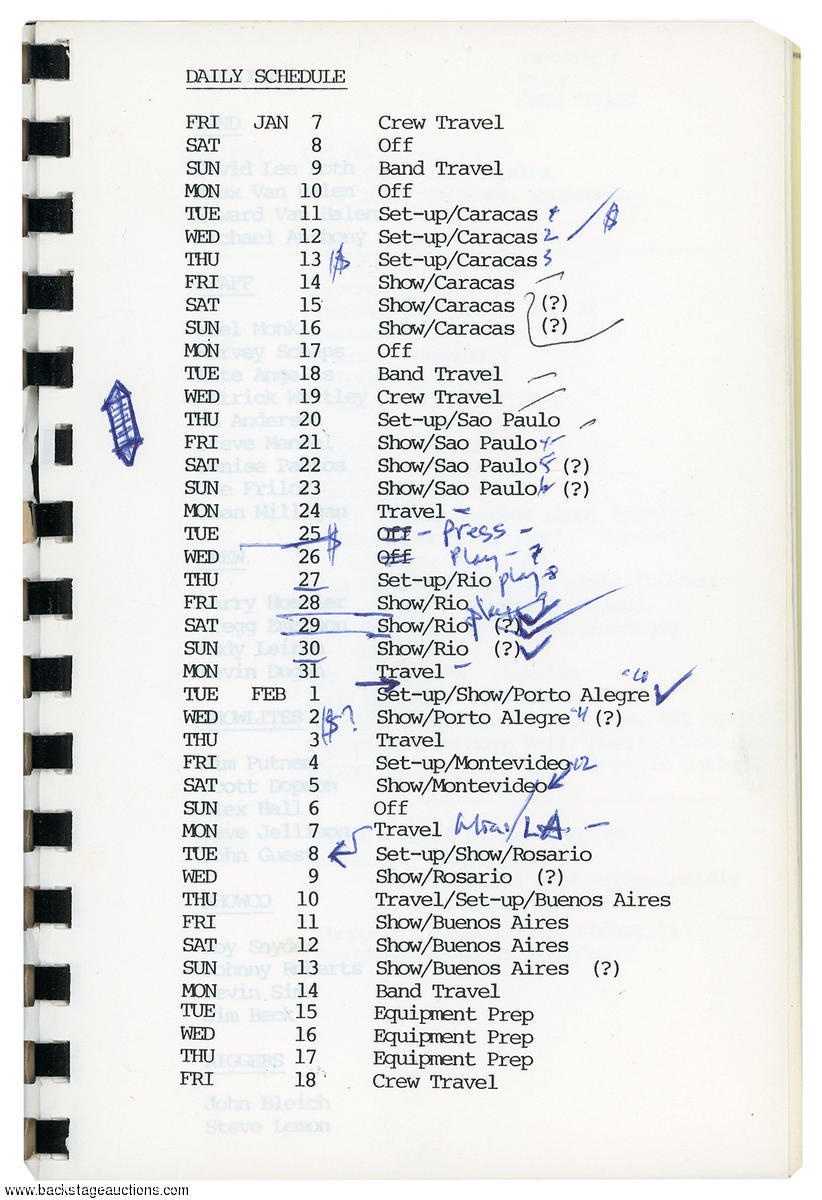 DAILY SCHEDULE
FRI JAN 7 Crew Travel
SAT 8 Off
SUN 9 Band Travel
MON 10 Off
TUE 11 Set-up/Caracas $
WED 12 Set-up/Caracas 2
THU 13 $ Set-up/Caracas 3
FRI 14 Show/Caracas
SAT 15 Show/Caracas (?)
SUN 16 Show/Caracas (?)
MON 17 Off
TUE 18 Band Travel
WED 19 Crew Travel
THU 20 Set-up/Sao Paulo
FRI 21 Show/Sao Paulo 4
SAT 22 Show/Sao Paulo 5 (?)
SUN 23 Show/Sao Paulo 6 (?)
MON 24 Travel -
TUE 25 $ Off - Press -
WED 26 Off Play - 7
THU 27 Set-up/Rio play-8
FRI 28 Show/Rio
SAT 29 Show/Rio (?)
SUN 30 Show/Rio (?)
MON 31 Travel -
TUE FEB 1 Set-up/Show/Porto Alegre -10
WED 2 $? Show/Porto Alegre -11 (?)
THU 3 Travel
FRI 4 Set-up/Montevideo 12
SAT 5 Show/Montevideo
SUN 6 Off
MON 7 Travel L.A. -
TUE 8 Set-up/Show/Rosario
WED 9 Show/Rosario (?)
THU 10 Travel/Set-up/Buenos Aires
FRI 11 Show/Buenos Aires
SAT 12 Show/Buenos Aires
SUN 13 Show/Buenos Aires (?)
MON 14 Band Travel
TUE 15 Equipment Prep
WED 16 Equipment Prep
THU 17 Equipment Prep
FRI 18 Crew Travel
John Bleich
Steve Lemon
www.backstageauctions.com